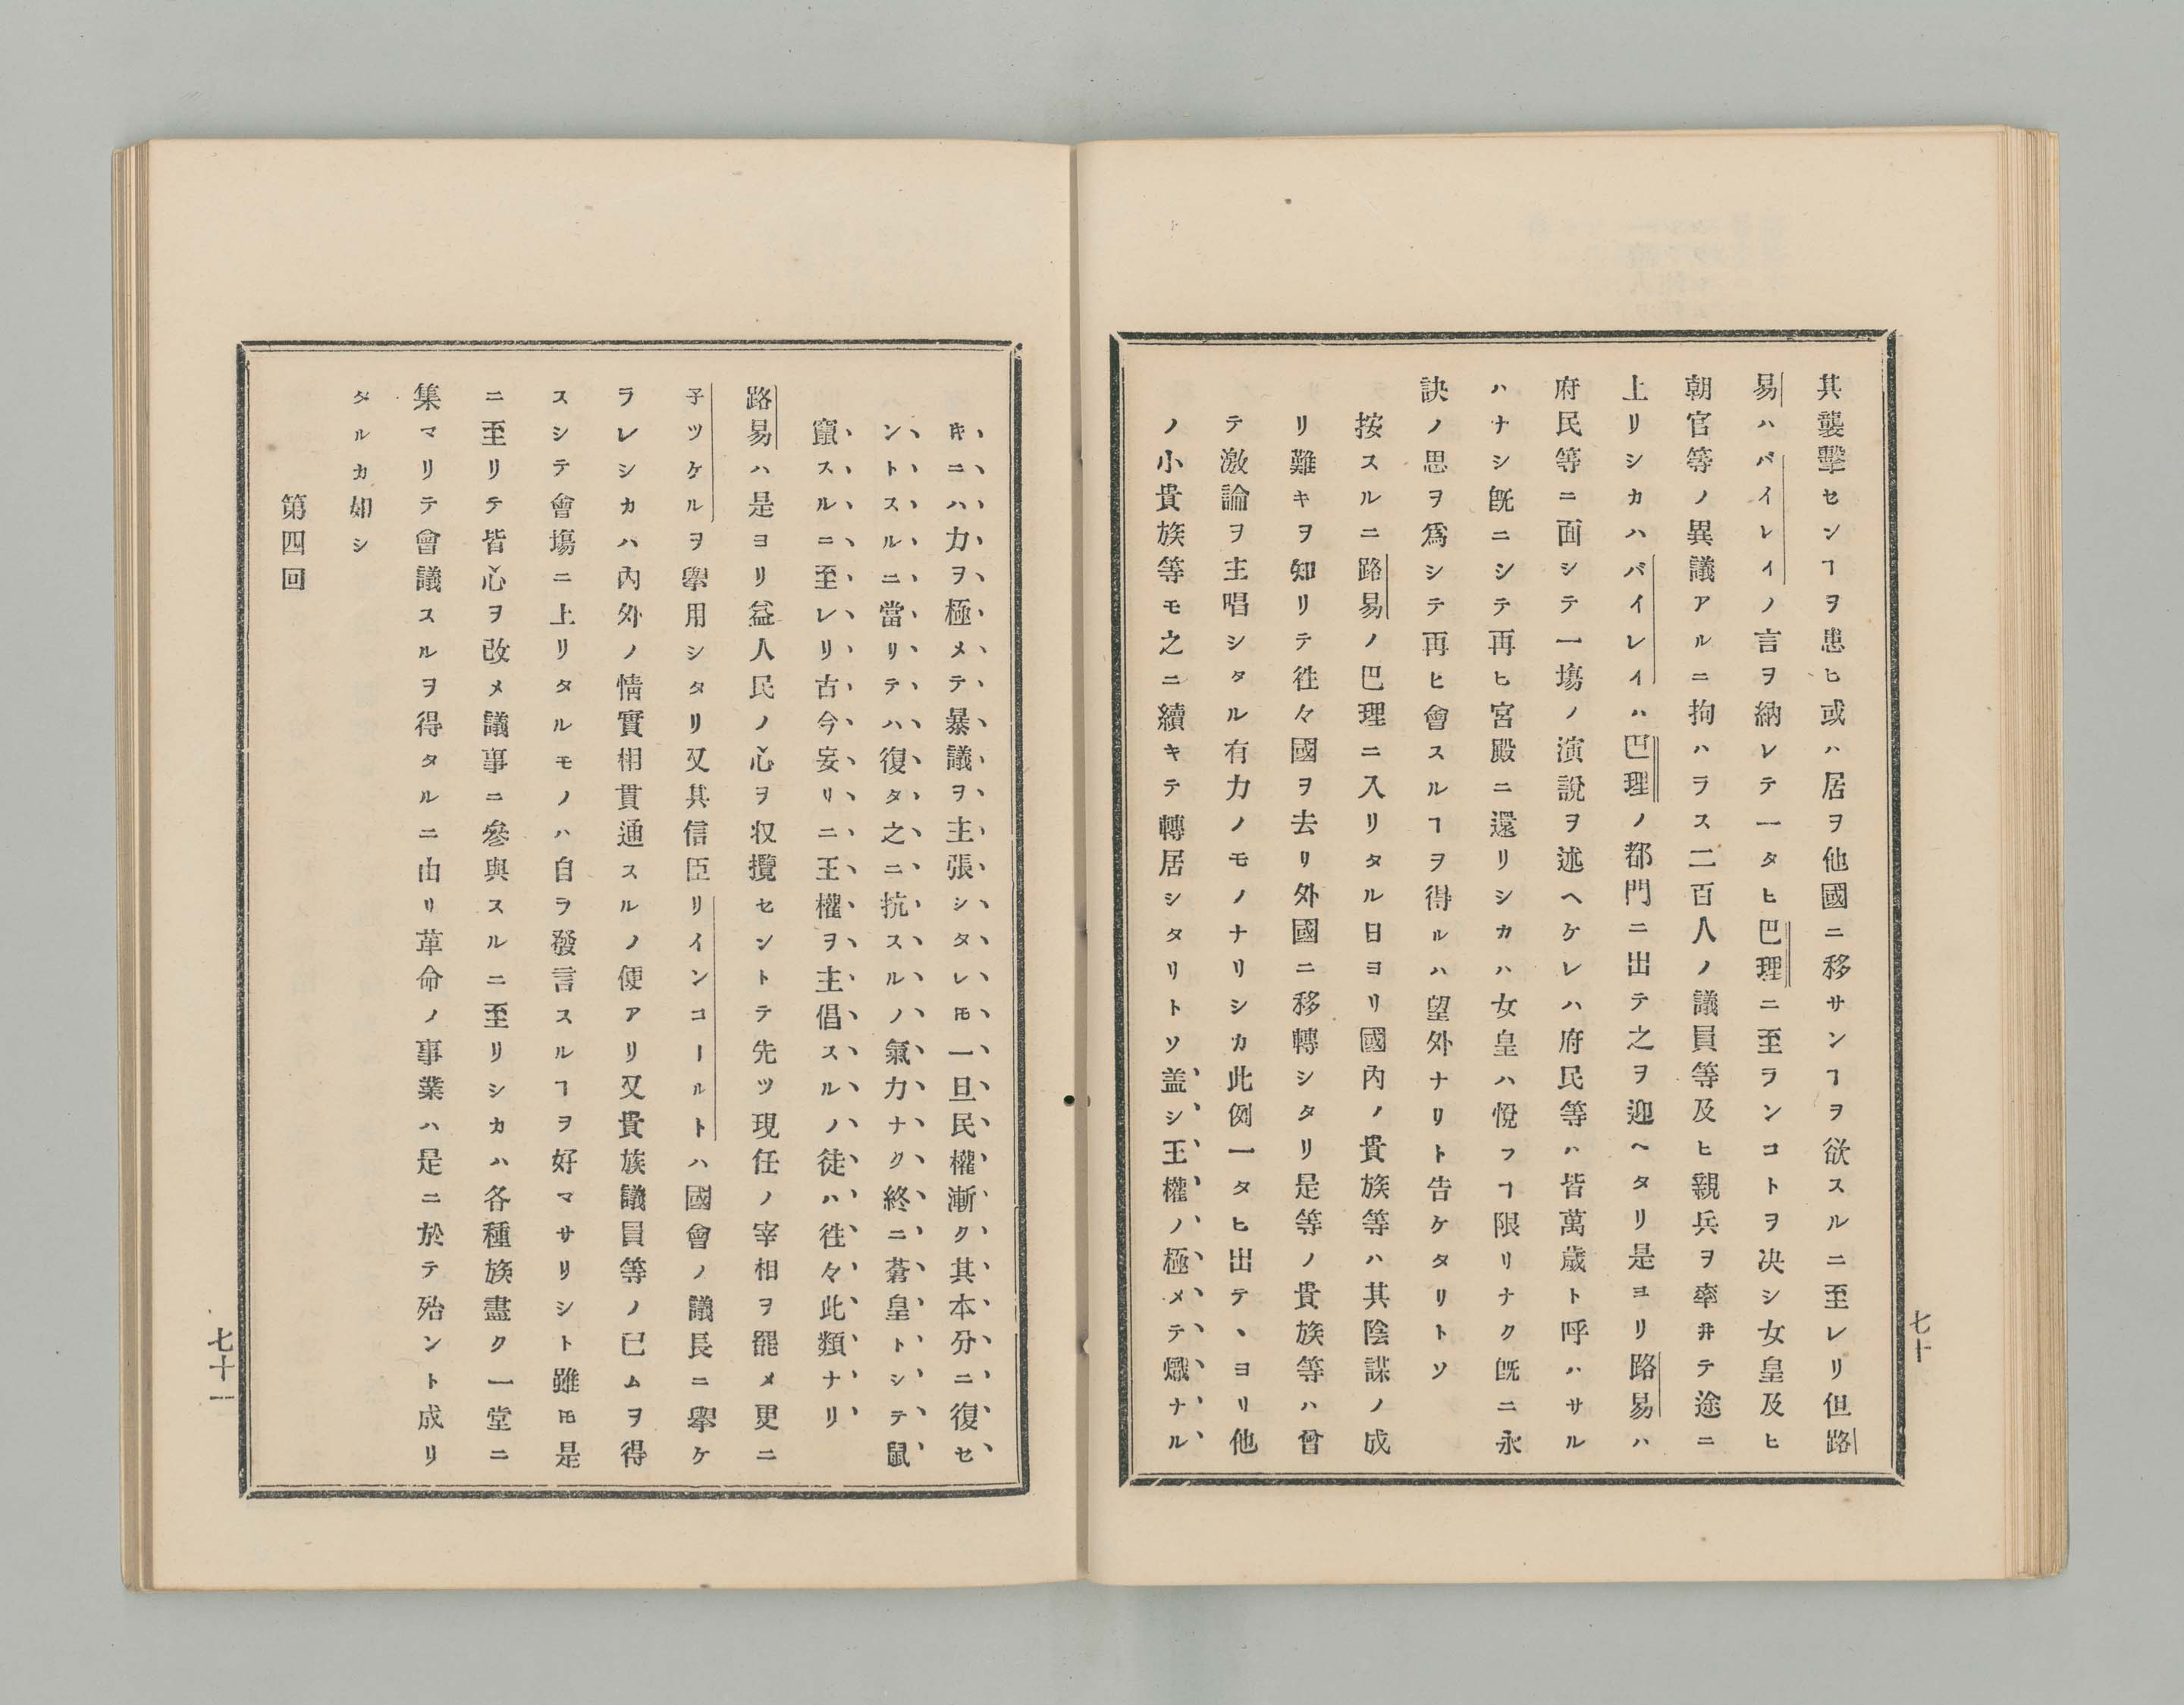 其襲擊センヿヲ患ヒ或ハ居ヲ他國ニ移サンヿヲ欲スルニ至レリ但路
易ハバイレイノ言ヲ納レテ一タヒ巴理ニ至ランコトヲ决シ女皇及ヒ
朝官等ノ異議アルニ拘ハラス二百人ノ議員等及ヒ親兵ヲ率井テ途ニ
上リシカハバイレイハ巴理ノ都門ニ出テ之ヲ迎ヘタリ是ヨリ路易ハ
府民等ニ面シテ一塲ノ演說ヲ述ヘケレハ府民等ハ皆萬歲ト呼ハサル
ハナシ旣ニシテ再ヒ宮殿ニ還リシカハ女皇ハ悅フヿ限リナク旣ニ永
訣ノ思ヲ爲シテ再ヒ會スルヿヲ得ルハ望外ナリト告ケタリトソ
按スルニ路易ノ巴理ニ入リタル日ヨリ國內ノ貴族等ハ其陰謀ノ成
リ難キヲ知リテ徃々國ヲ去リ外國ニ移轉シタリ是等ノ貴族等ハ曾
テ激論ヲ主唱シタル有力ノモノナリシカ此例一タヒ出テヽヨリ他
ノ小貴族等モ之ニ續キテ轉居シタリトソ盖シ王權ノ極メテ熾ナル
七十
𪜈ニハ力ヲ極メテ暴議ヲ主張シタレ𪜈一旦民權漸ク其本分ニ復セ
ントスルニ當リテハ復タ之ニ抗スルノ氣力ナク終ニ蒼皇トシテ鼠
竄スルニ至レリ古今妄リニ王權ヲ主倡スルノ徒ハ徃々此類ナリ
路易ハ是ヨリ益人民ノ心ヲ収攬セントテ先ツ現任ノ宰相ヲ罷メ更ニ
子ツケルヲ擧用シタリ又其信臣リインコールトハ國會ノ議長ニ擧ケ
ラレシカハ內外ノ情實相貫通スルノ便アリ又貴族議員等ノ已ムヲ得
スシテ會塲ニ上リタルモノハ自ラ發言スルヿヲ好マサリシト雖𪜈是
ニ至リテ皆心ヲ改メ議事ニ參與スルニ至リシカハ各種族盡ク一堂ニ
集マリテ會議スルヲ得タルニ由リ革命ノ事業ハ是ニ於テ殆ント成リ
タルカ如シ
第四回
七十一